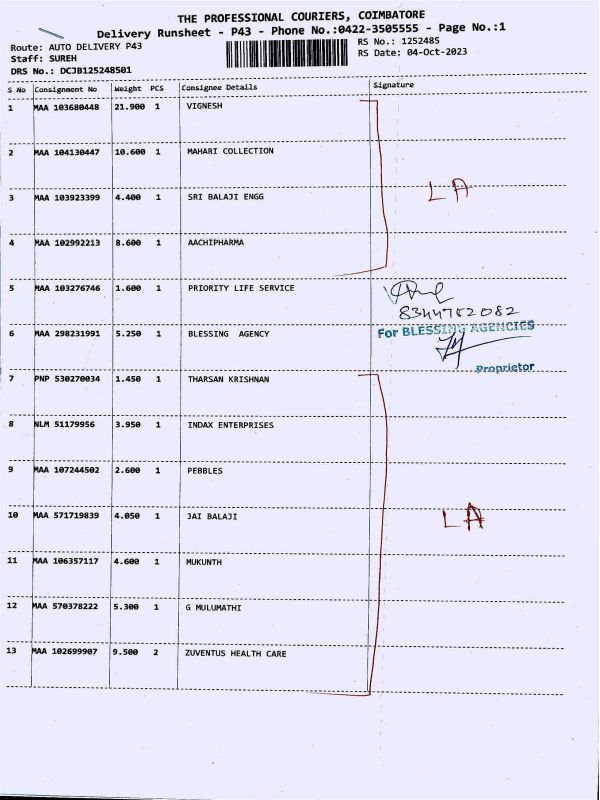 THE PROFESSIONAL COURIERS, COIMBATORE
Delivery Runsheet - P43 - Phone No.:0422-3505555 - Page No.:1
Route: AUTO DELIVERY P43
RS No.: 1252485
Staff: SUREH
RS Date: 04-Oct-2023
DRS No.: DCJB125248501
S No Consignment No Weight PCS Consignee Details Signature
1 MAA 103680448 21.900 1 VIGNESH
2 MAA 104130447 10.600 1 MAHARI COLLECTION
LA
3 MAA 103923399 4.400 1 SRI BALAJI ENGG
4 MAA 102992213 8.600 1 AACHIPHARMA
5 MAA 103276746 1.600 1 PRIORITY LIFE SERVICE
8344752082
6 MAA 298231991 5.250 1 BLESSING AGENCY For BLESSING AGENCIES
Proprietor
7 PNP 530270034 1.450 1 THARSAN KRISHNAN
8 NLM 51179956 3.950 1 INDAX ENTERPRISES
9 MAA 107244502 2.600 1 PEBBLES
10 MAA 571719839 4.050 1 JAI BALAJI LA
11 MAA 106357117 4.600 1 MUKUNTH
12 MAA 570378222 5.300 1 G MULUMATHI
13 MAA 102699907 9.500 2 ZUVENTUS HEALTH CARE